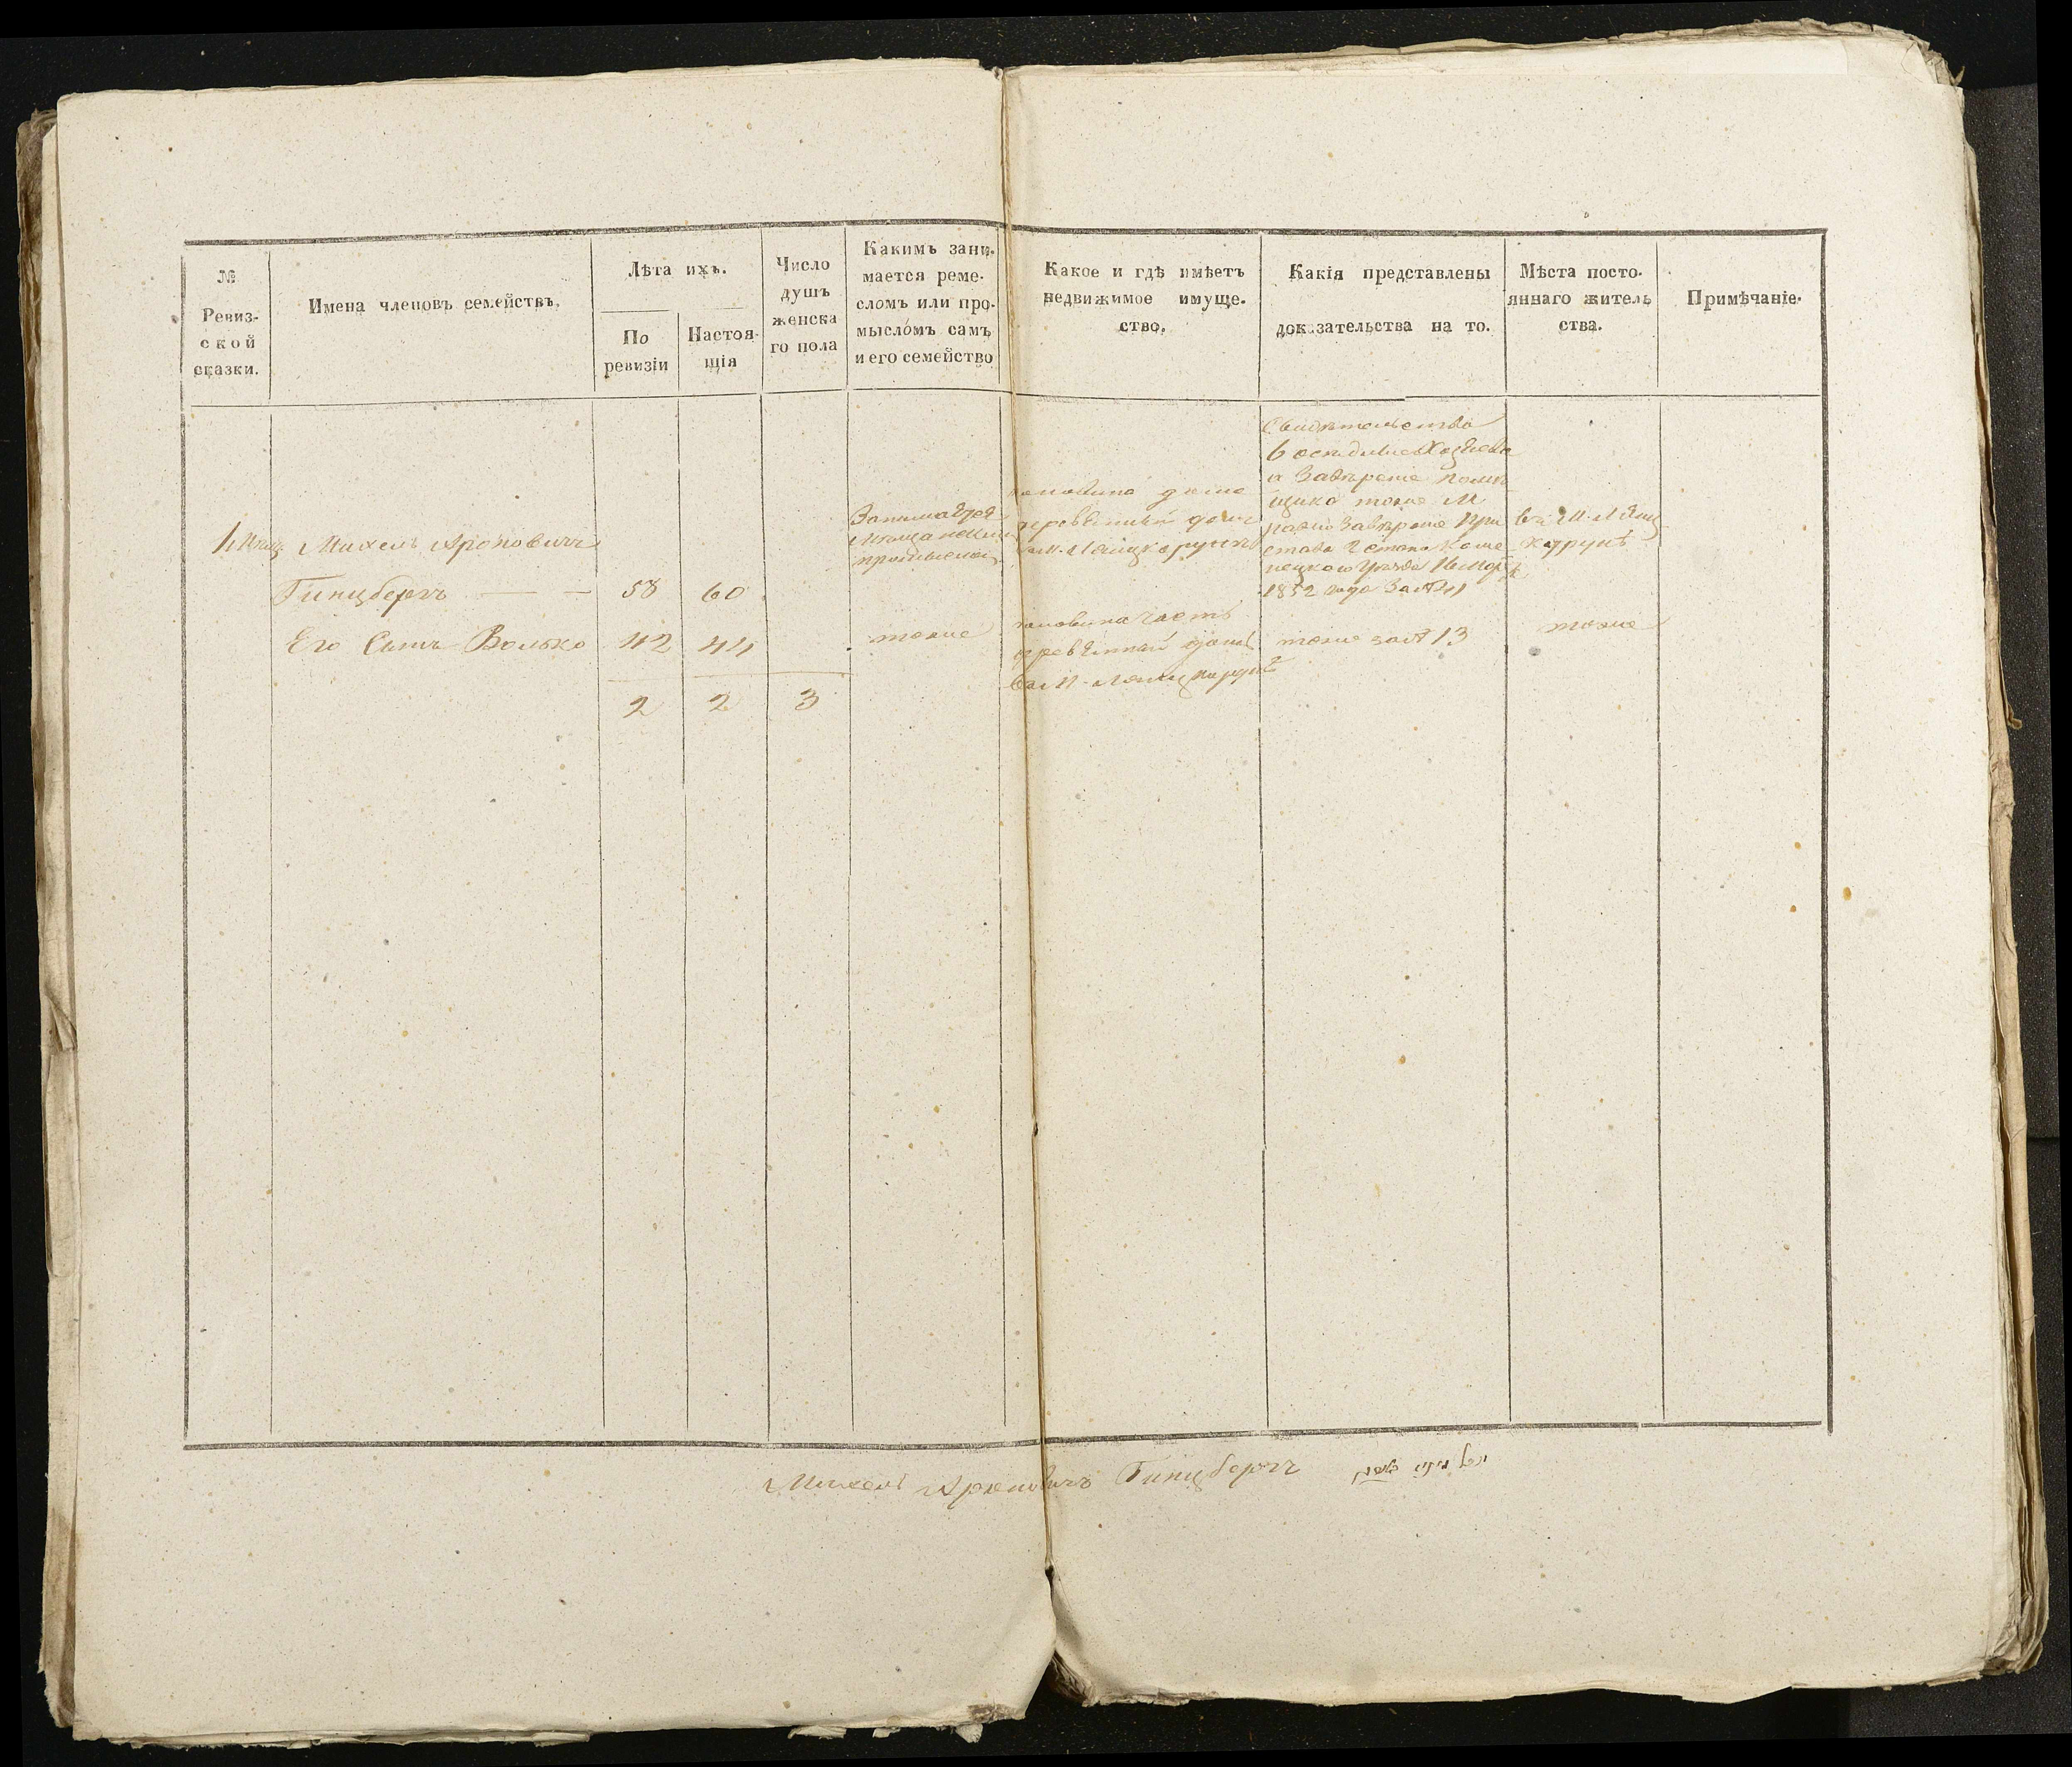 №
Ревиз-
ской
сказки.
Имена членовъ семействъ.
Лѣта ихъ.
По
ревизіи
Настоя-
щія
Число
душъ
женска
го пола
Какимъ зани-
мается реме-
сломъ или про-
мысломъ самъ
и его семейство
Какое и гдѣ имѣетъ
недвижимое имуще-
ство.
Какія представлены
доказательства на то.
Мѣста посто-
яннаго житель
ства.
Примѣчаніе.
Михель Ароновичъ
Гинцбергъ — — 58 60
Занимается
промысломъ
половина дома
деревянный домъ
въ М.
Свидѣтельства
и Завѣреніе помѣ
щика тоже М
Завѣреніе При
става 2 стана Каме
нецкого Уѣзда
1852 года За №
въ М. Лянц
коруне
Его Сынъ Волько 42 44
тоже
половина часть
деревянный
въ М. Лянцкоруне
тоже за № 13
тоже
2 2 3
Михель Ароновичъ Гинцбергъ